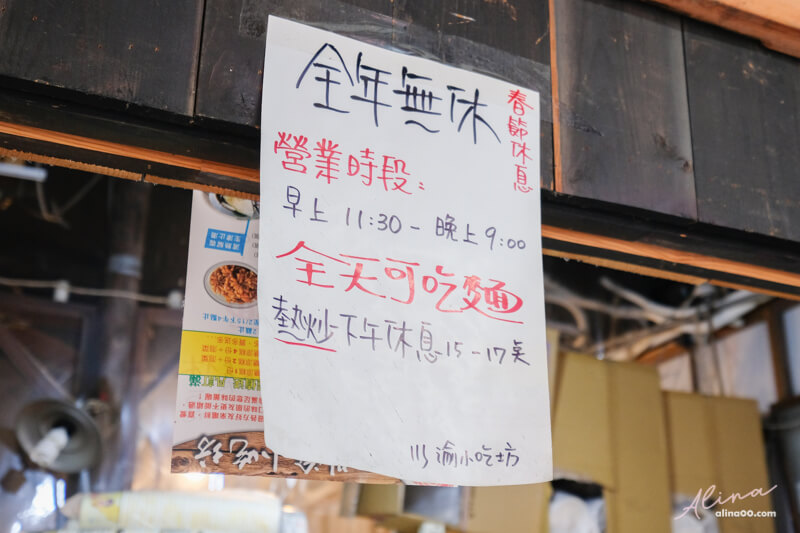 全年無休
春節休息
營業時段:
早上 11:30 - 晚上 9:00
全天可吃麵
熱炒下午休息 15-17點
川渝小吃坊
Alina
alina00.com